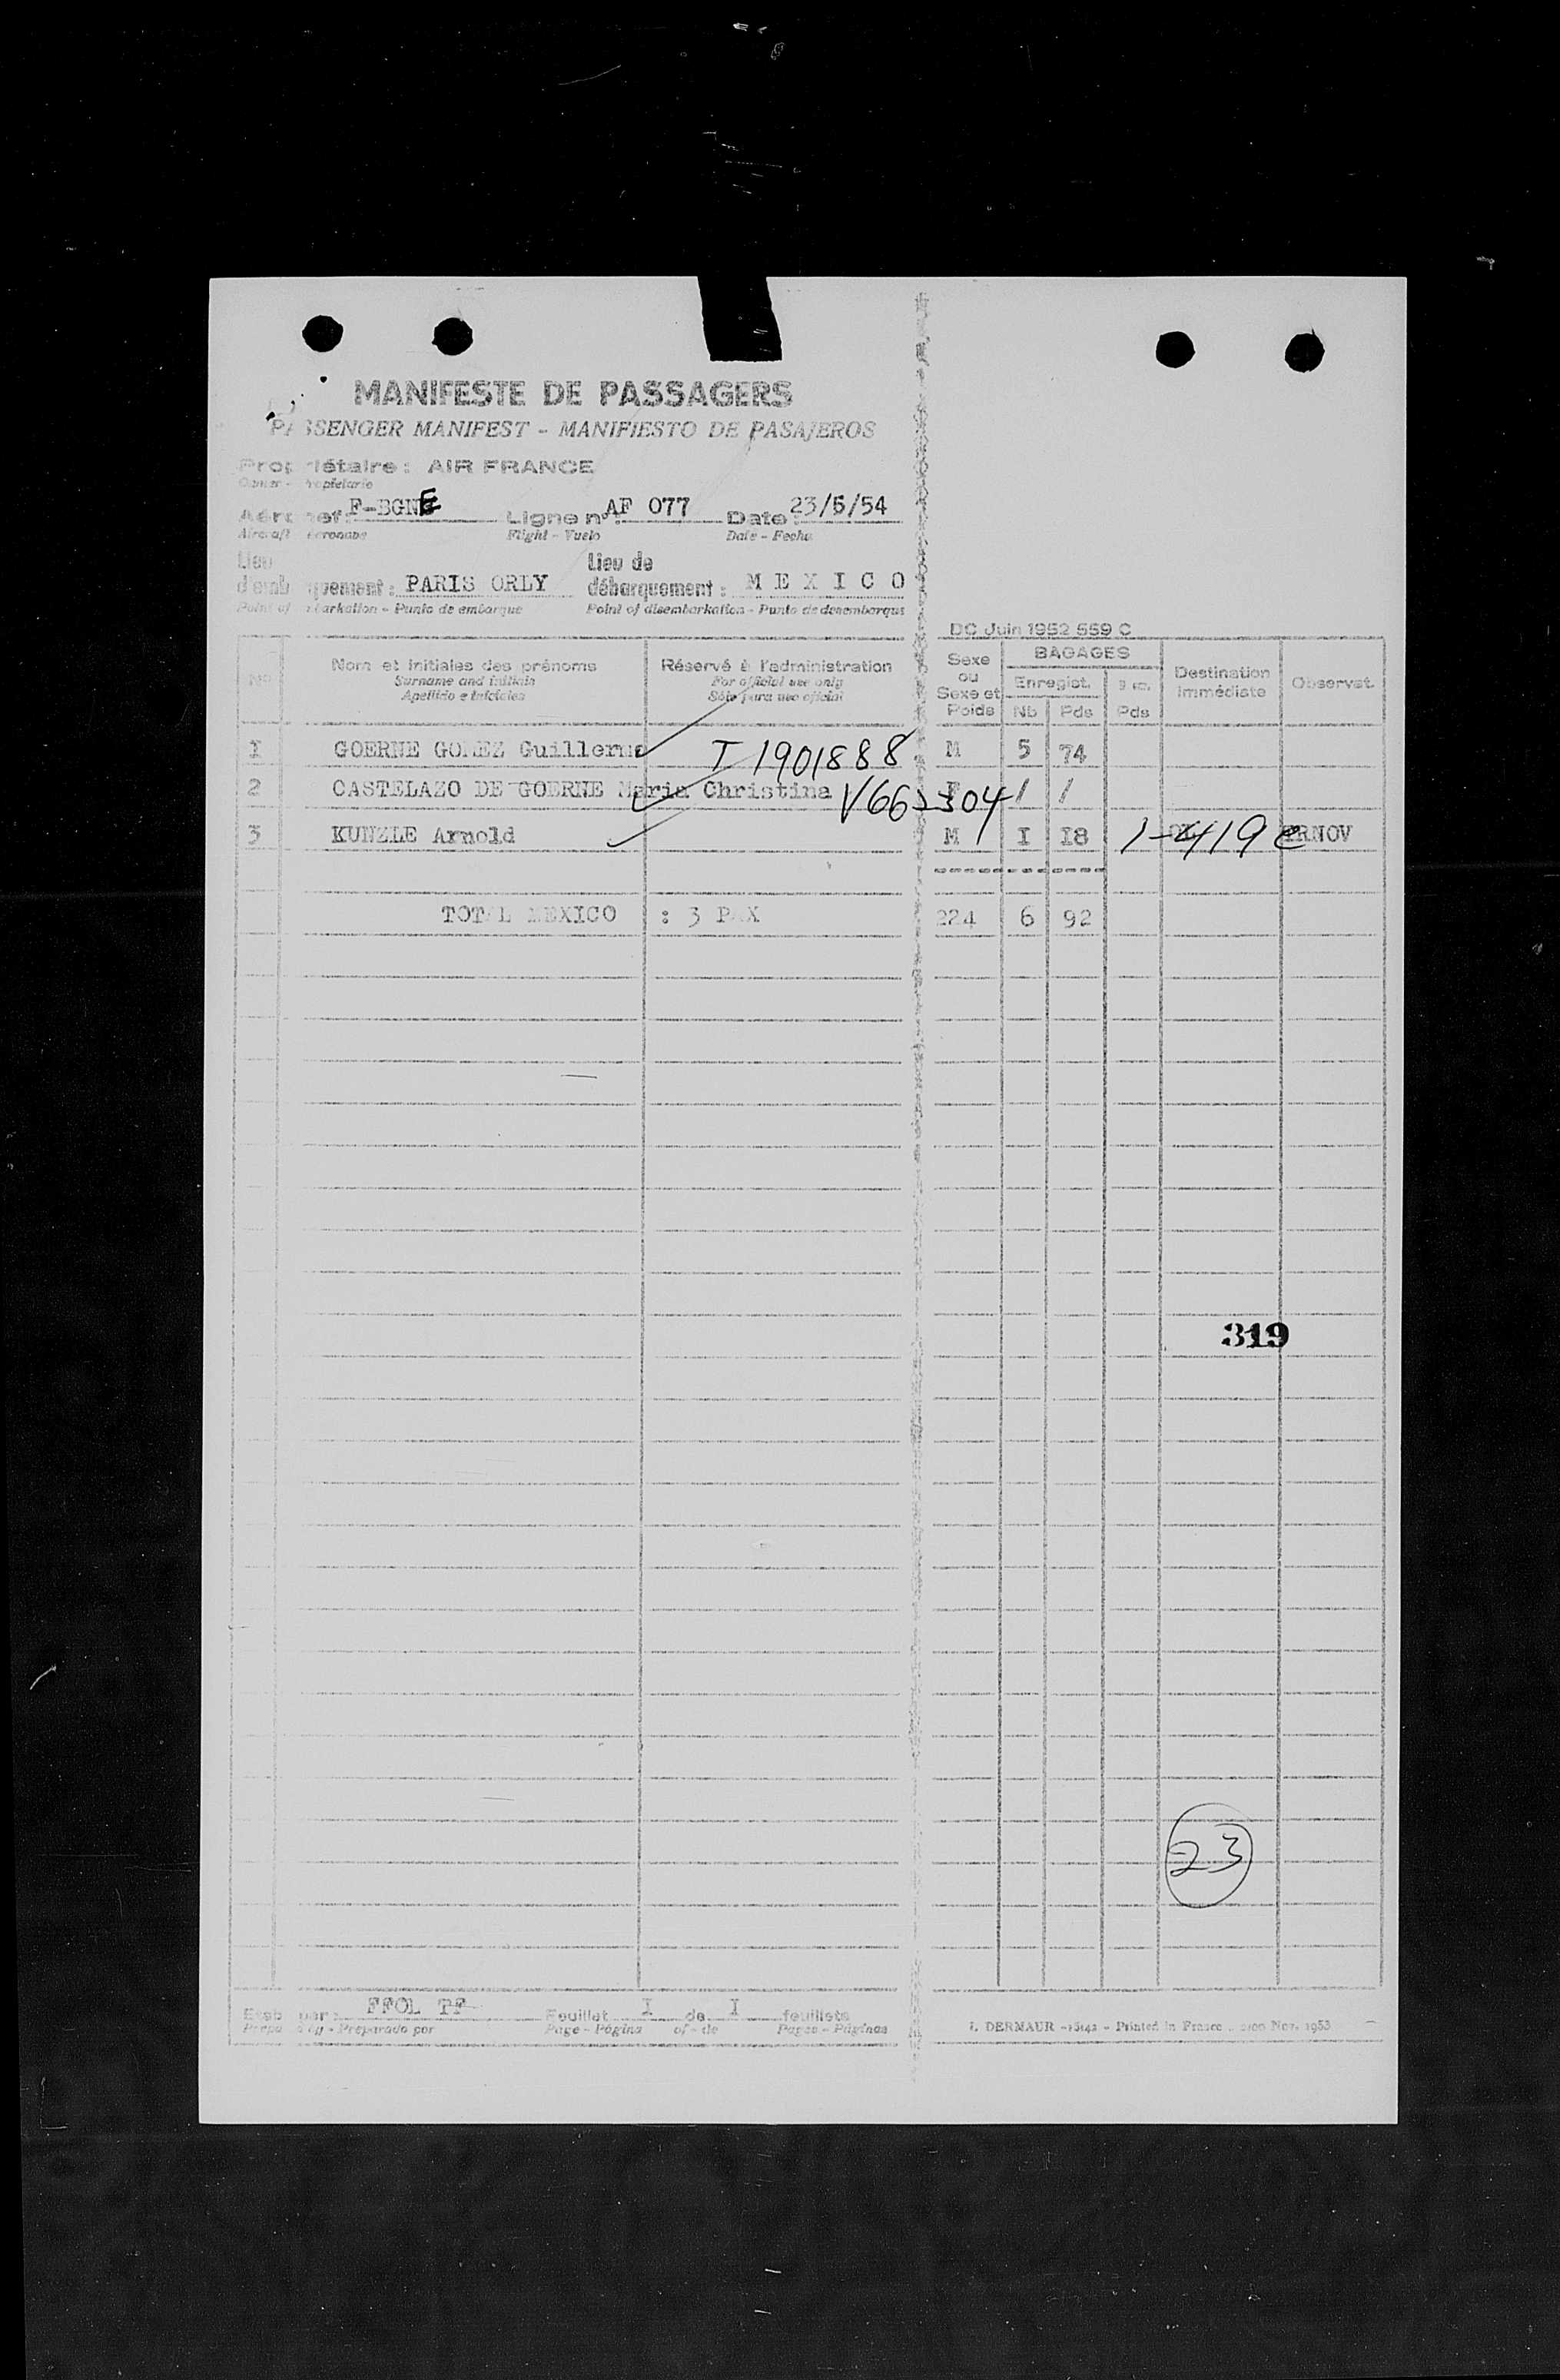 MANIFESTE DE PASSAGERS
PASSENGER MANIFEST - MANIFIESTO DE PASAJEROS
Propriétaire : AIR FRANCE
Owner - Propietario
Aéronef : F-BGNE Ligne n° : AF 077 Date : 23/5/54
Aircraft Aeronave Flight - Vuelo Date - Fecha
Lieu Lieu de
d'embarquement : PARIS ORLY débarquement : M E X I C O
Point of embarkation - Punto de embarque Point of disembarkation - Punto de desembarque
DC Juin 1952 559 C
N° Nom et initiales des prénoms Réservé à l'administration Sexe ou Sexe et Poids BAGAGES Destination immédiate Observat.
Surname and initials For official use only Enregist.
Apellido e iniciales Sólo para uso oficial Nb Pds Pds
1 GOERNE GOMEZ Guillermo T 1901888 M 5 74
2 CASTELAZO DE GOERNE Maria Christina V662304 F / /
3 KUNZLE Arnold M I I8 1-419 RNOV
TOTAL MEXICO : 3 PAX 224 6 92
319
23
Etab par : FFOL TF Feuillet I de I feuillets
Prepared by - Preparado por Page - Página of - de Pages - Páginas
I. DERMAUR - Printed in France Nov. 1953